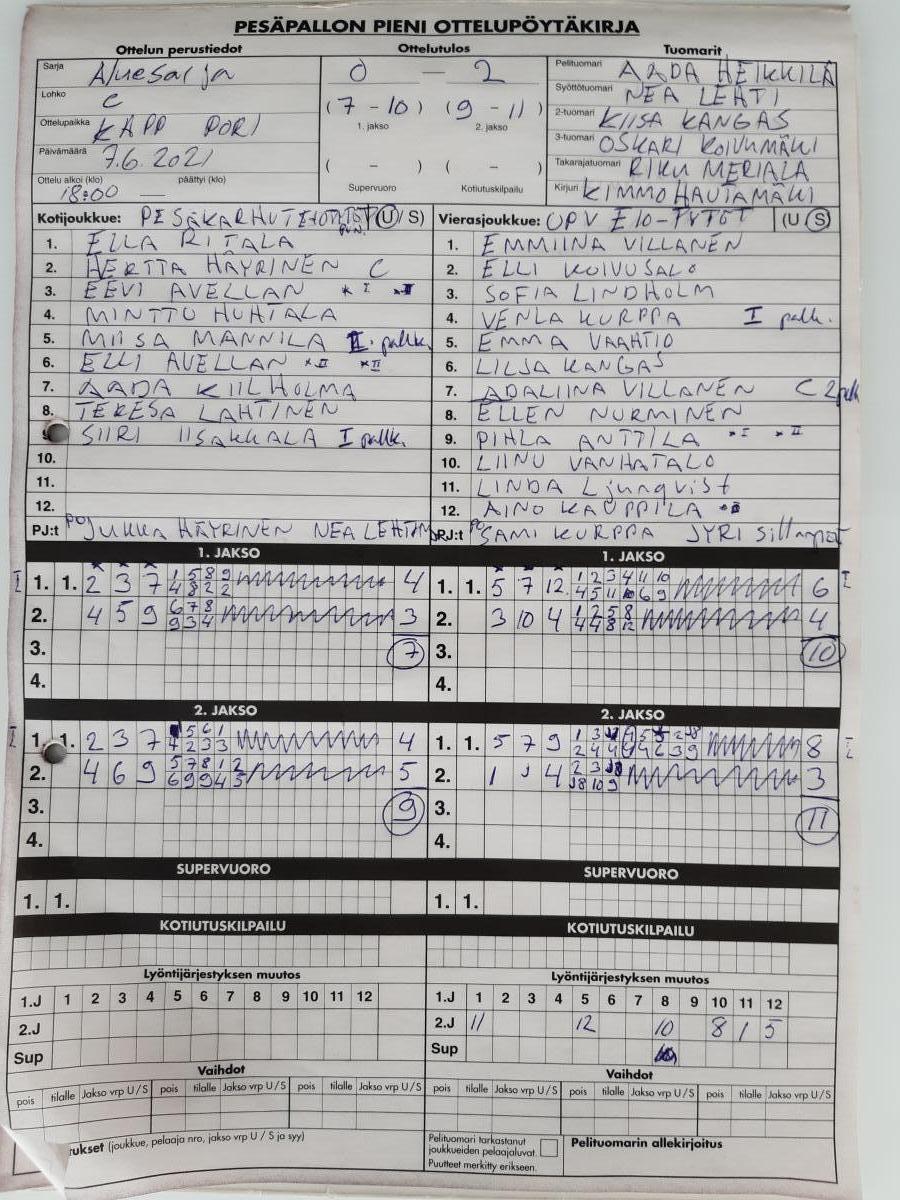 PESÄPALLON PIENI OTTELUPÖYTÄKIRJA
Ottelun perustiedot
Ottelutulos
Tuomarit
Sarja Aluesarja
Lohko C
Ottelupaikka KAPP PORI
Päivämäärä 7.6.2021
Ottelu alkoi (klo) päättyi (klo)
18:00 —
0 — 2
(7 - 10) (9 - 11)
1. jakso 2. jakso
( - ) ( - )
Supervuoro Kotiutuskilpailu
Pelituomari AADA HEIKKILÄ
Syöttötuomari NEA LEHTI
2-tuomari KIISA KANGAS
3-tuomari OSKARI KOIVUMÄKI
Takarajatuomari RIKU MERIALA
Kirjuri KIMMO HAUTAMÄKI
Kotijoukkue: PESÄKARHUT (U/S)
1. ELLA RITALA
2. HERTTA HÄYRINEN C
3. EEVI AVELLAN * I * II
4. MINTTU HUHTALA
5. MIISA MANNILA II. palk.
6. ELLI AVELLAN * II * II
7. AADA KIILHOLMA
8. TERESA LAHTINEN
9. SIIRI IISAKKALA I palk.
10.
11.
12.
PJ:t PJ JUKKA HÄYRINEN NEA
Vierasjoukkue: UPV E10-TYTÖT (U S)
1. EMMIINA VILLANEN
2. ELLI KOIVUSALO
3. SOFIA LINDHOLM
4. VENLA KURPPA I palk.
5. EMMA VAAHTIO
6. LILJA KANGAS
7. ADALIINA VILLANEN C 2 palk
8. ELLEN NURMINEN
9. PIHLA ANTTILA * I * II
10. LIINU VANHATALO
11. LINDA Ljunqvist
12. AINO KAUPPILA
PJ:t PJ SAMI KURPPA JYRI
1. JAKSO
I 1. 1. 2 3 7 1 5 8 9 4
4 8 2 2
2. 4 5 9 6 7 8 3
9 3 4
3. 7
4.
1. JAKSO
1. 1. 5 7 12 1 2 3 4 11 10 6 I
4 5 11 10 6 9
2. 3 10 4 1 2 5 8 4
4 4 8 12
3. 10
4.
2. JAKSO
I 1. 1. 2 3 7 5 6 1 4
4 2 3 3
2. 4 6 9 5 7 8 1 2 5
6 9 9 4 3
3. 9
4.
2. JAKSO
1. 1. 5 7 9 8 I
2. 1 4 3
3. 11
4.
SUPERVUORO
1. 1.
SUPERVUORO
1. 1.
KOTIUTUSKILPAILU
KOTIUTUSKILPAILU
Lyöntijärjestyksen muutos
1.J 1 2 3 4 5 6 7 8 9 10 11 12
2.J
Sup
Lyöntijärjestyksen muutos
1.J 1 2 3 4 5 6 7 8 9 10 11 12
2.J 11 12 10 8 1 5
Sup
Vaihdot
pois tilalle Jakso vrp U/S pois tilalle Jakso vrp U/S pois tilalle Jakso vrp U/S
Vaihdot
pois tilalle Jakso vrp U/S pois tilalle Jakso vrp U/S pois tilalle Jakso vrp U/S
tukset (joukkue, pelaaja nro, jakso vrp U / S ja syy)
Pelituomari tarkastanut
joukkueiden pelaajaluvat.
Puutteet merkitty erikseen.
Pelituomarin allekirjoitus